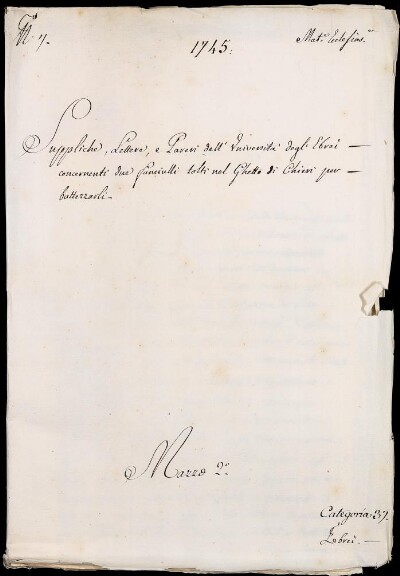 N.º 7.
1745.
Mat.ª Ecclesias.ca
Suppliche, Lettere, e Pareri dell' Università degli Ebrei —
concernenti due fanciulli tolti nel Ghetto di Chieri per —
battezzarli.
Mazzo 2.º
Categoria 37.
Ebrei. —